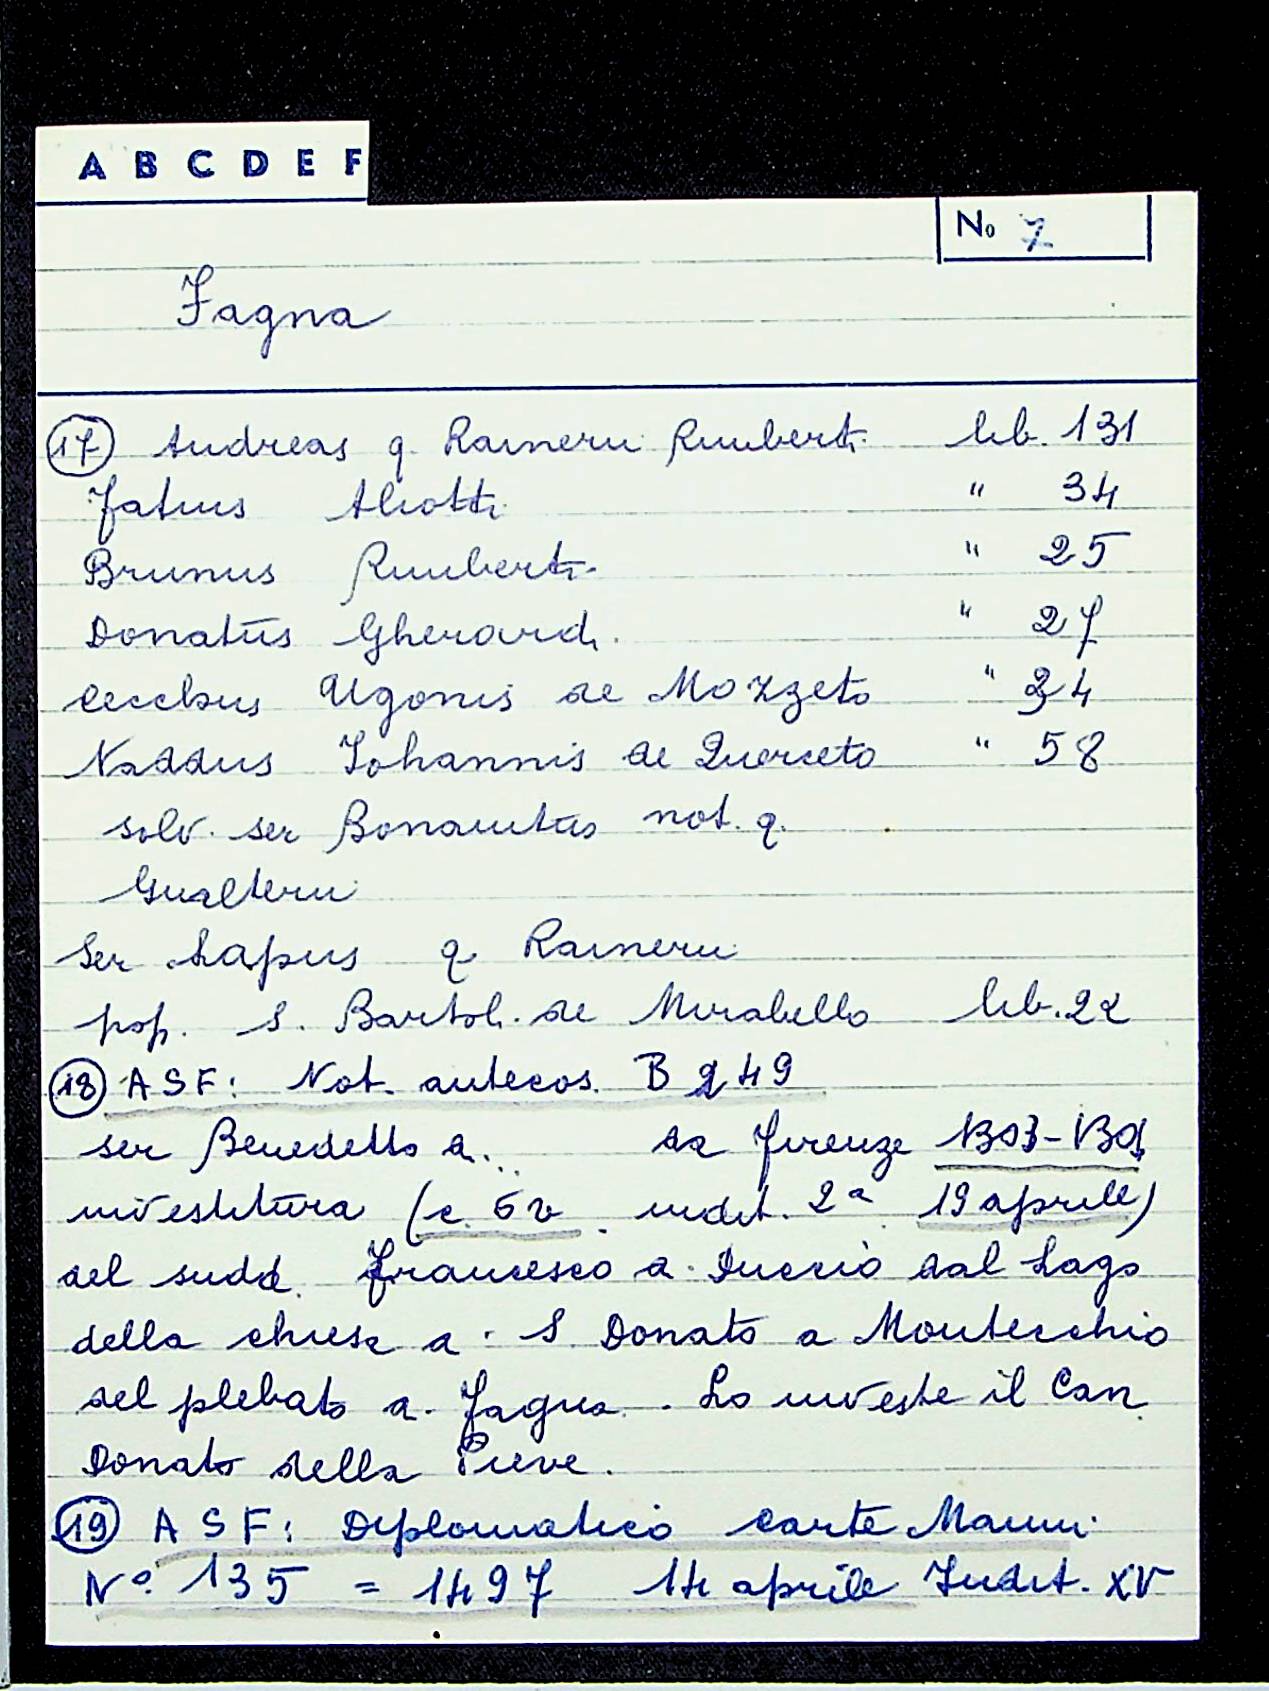 A B C D E F
No 7
Fagna
17 Andreas q. Rainerii Runberti lib. 131
Fatius Aliotti " 34
Brunus Runberti " 25
Donatus Gherardi. " 27
Cecchus Ugonis de Mozzeto " 24
Naddus Iohannis de Querceto " 58
solv. ser Bonauitus not. q.
Gualterii
Ser Lapus q. Rainerii
pop. S. Bartol. de Mirabello lib. 22
18 ASF: Not. antecos. B 249
ser Benedetto d... da Firenze 1303-
investitura (c. 6v. indit. 2a 19 aprile)
del sudd. Francesco d. Duccio dal Lago
della chiesa d. S Donato a Montecchio
del plebato d. Fagna. Lo investe il Can
Donato della Pieve.
19 ASF: Diplomatico carte Manni
No. 135 = 1497 14 aprile Indit. XV